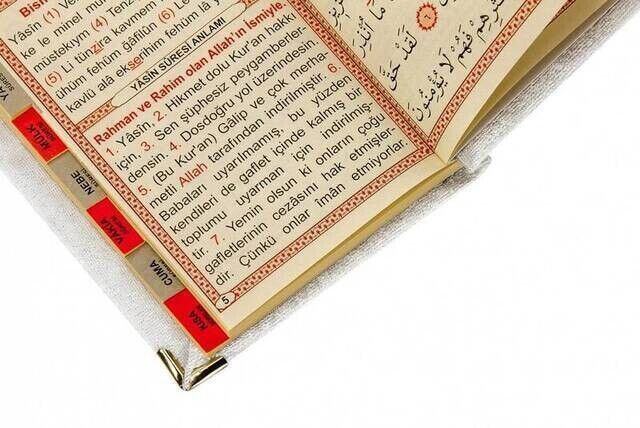 Yâsin (1)
ke le minel
müstekıym (4) Tenz
(5) Li tünzira kavmem
ühüm fehüm ğâfilûn (6) Le
kavlü alâ ekserihim fehüm lâ y
YÂSİN SÛRESİ ANLAMI
Rahman ve Rahim olan Allah'ın İsmiyle
1. Yâsin, 2. Hikmet dolu Kur'an hakkı
için. 3. Sen şüphesiz peygamberler-
densin. 4. Dosdoğru yol üzerindesin.
5. (Bu Kur'an) Gâlip ve çok merha
metli Allah tarafından indirilmiştir. 6.
Babaları uyarılmamış, bu yüzden
kendileri de gaflet içinde kalmış bir
toplumu uyarman için indirilmiş-
tir. 7. Yemin olsun ki onların çoğu
gafletlerinin cezâsını hak etmişler
dir. Çünkü onlar îmân etmiyorlar.
5
لَقَدْ حَقَّ
فَهُمْ لَا يُؤْمِنُونَ
MÜLK
NEBE
VAKIA
CUMA
KISA